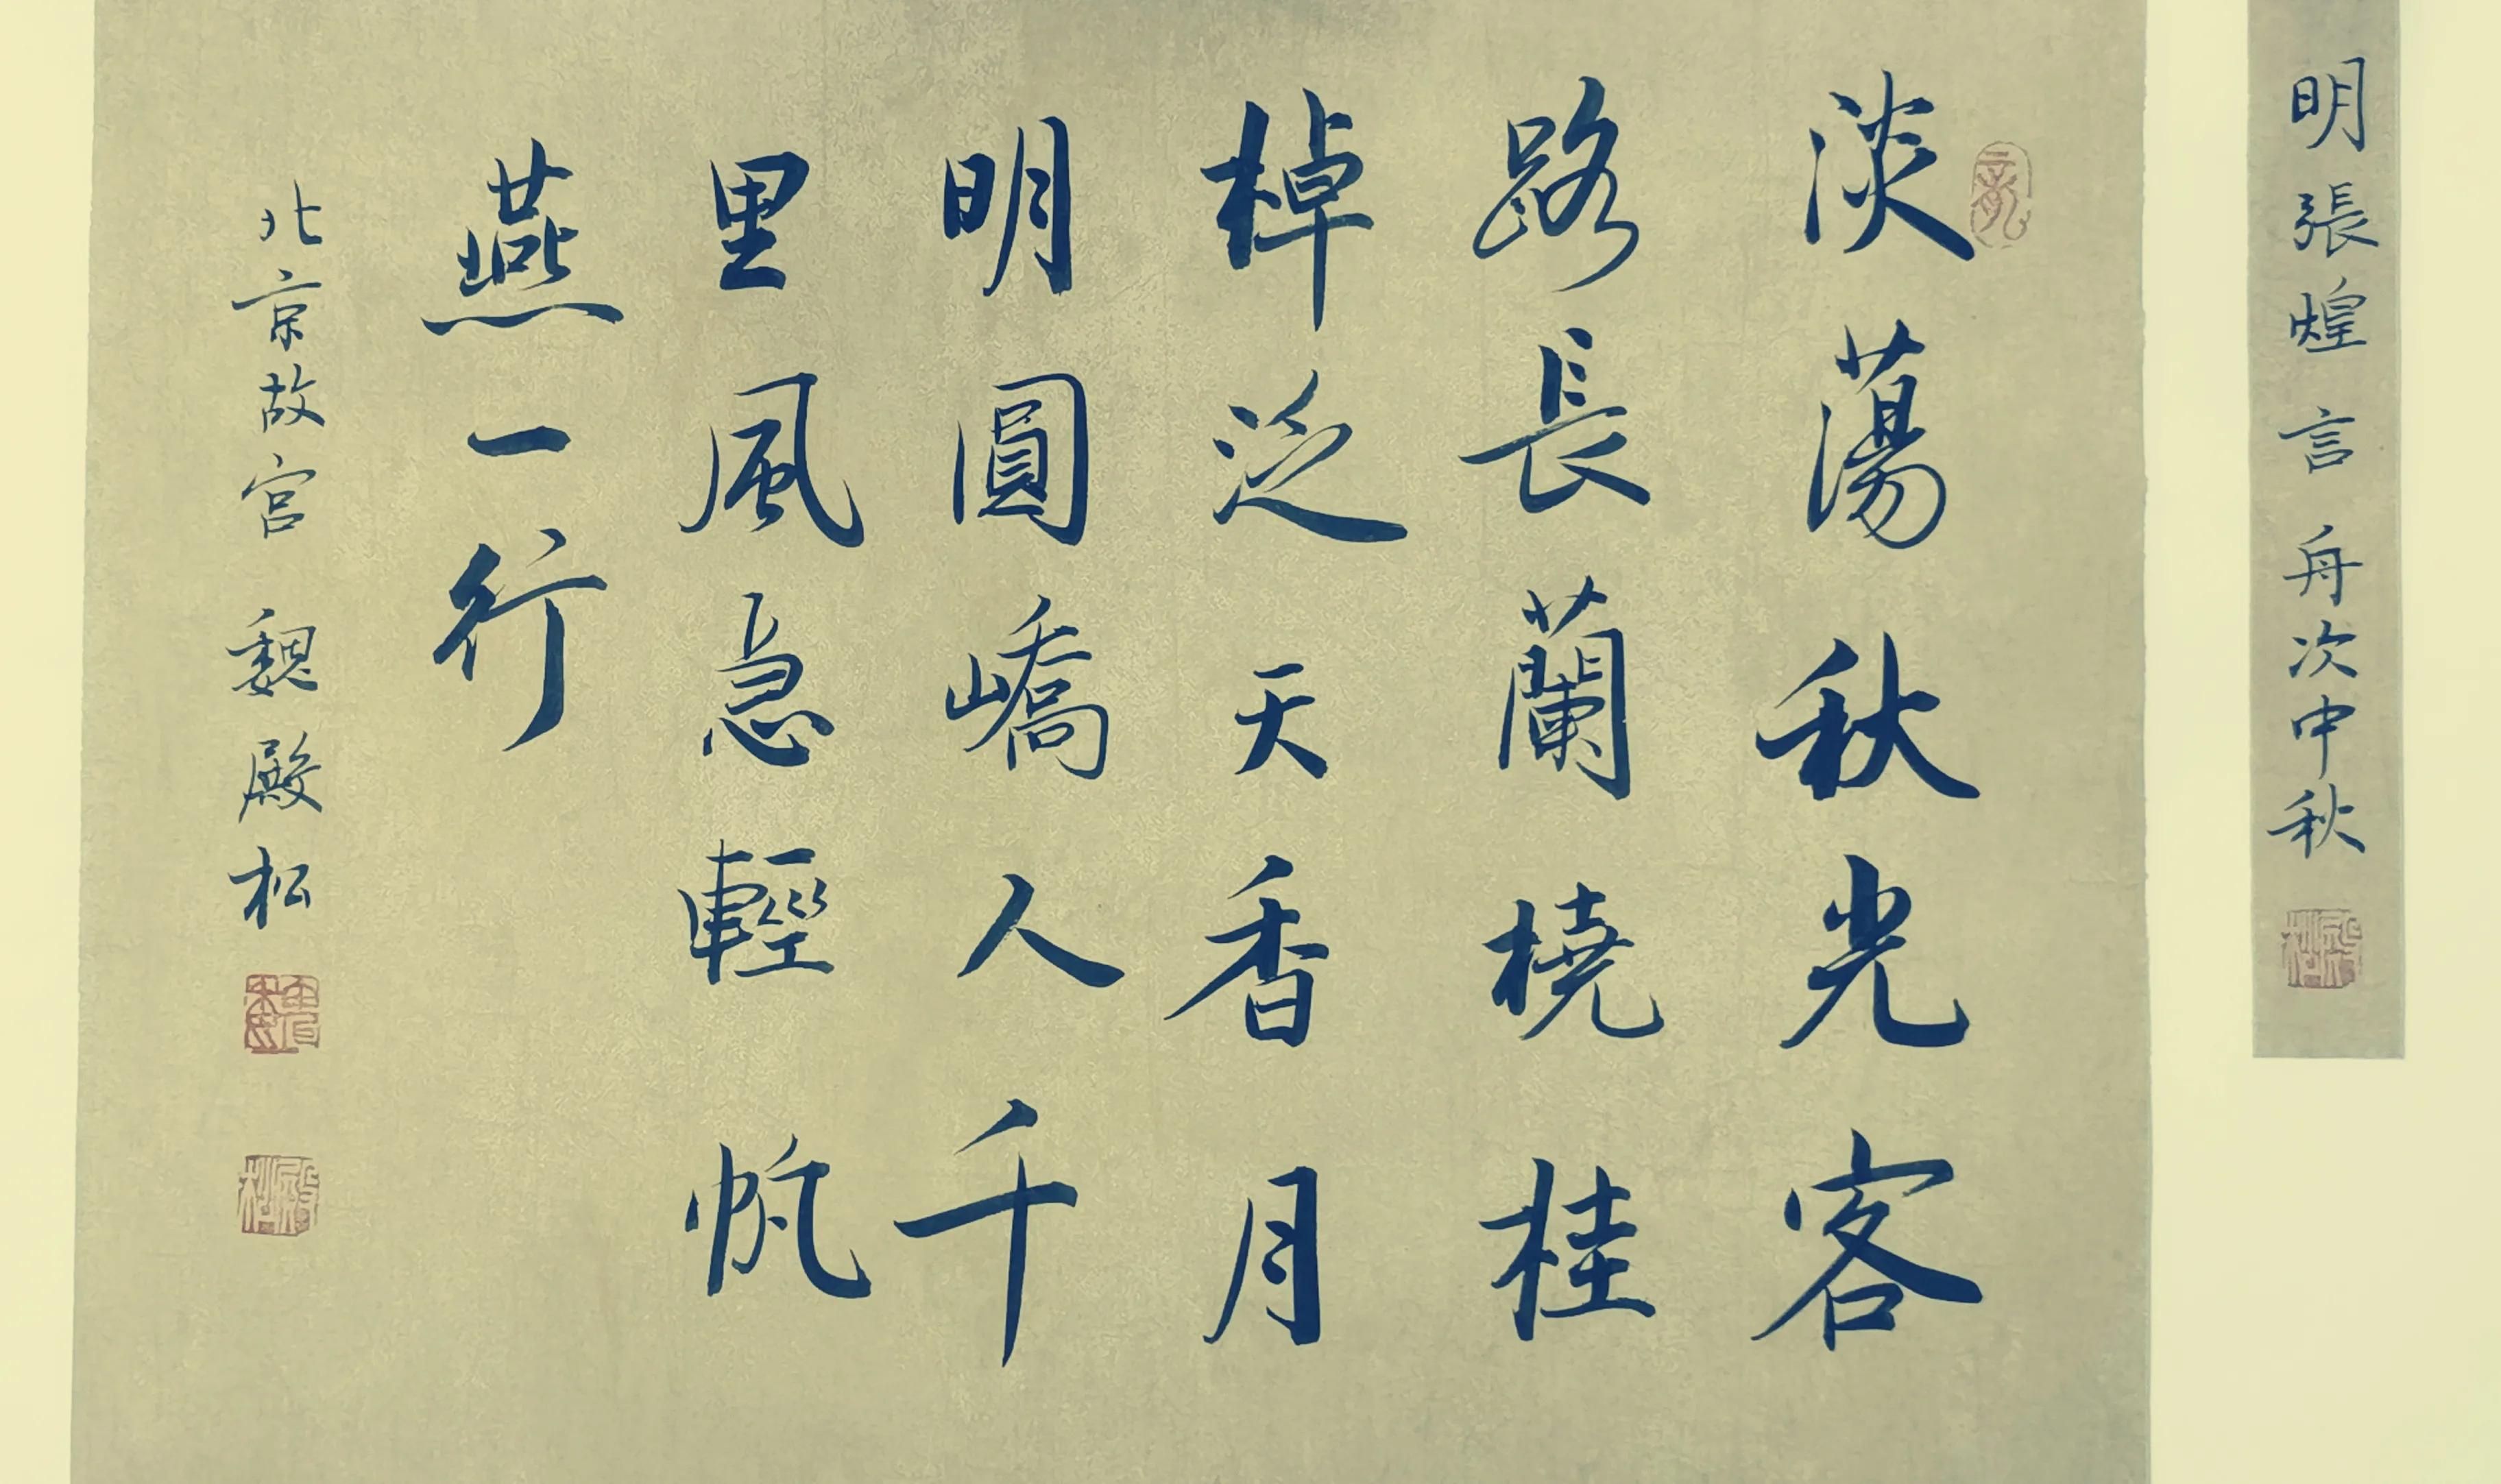 明張煌言舟次中秋
淡蕩秋光客
路長蘭橈桂
棹泛天香月
明圓嶠人千
里風急輕帆
燕一行
北京故宫魏殿松
魏
殿松
殿松